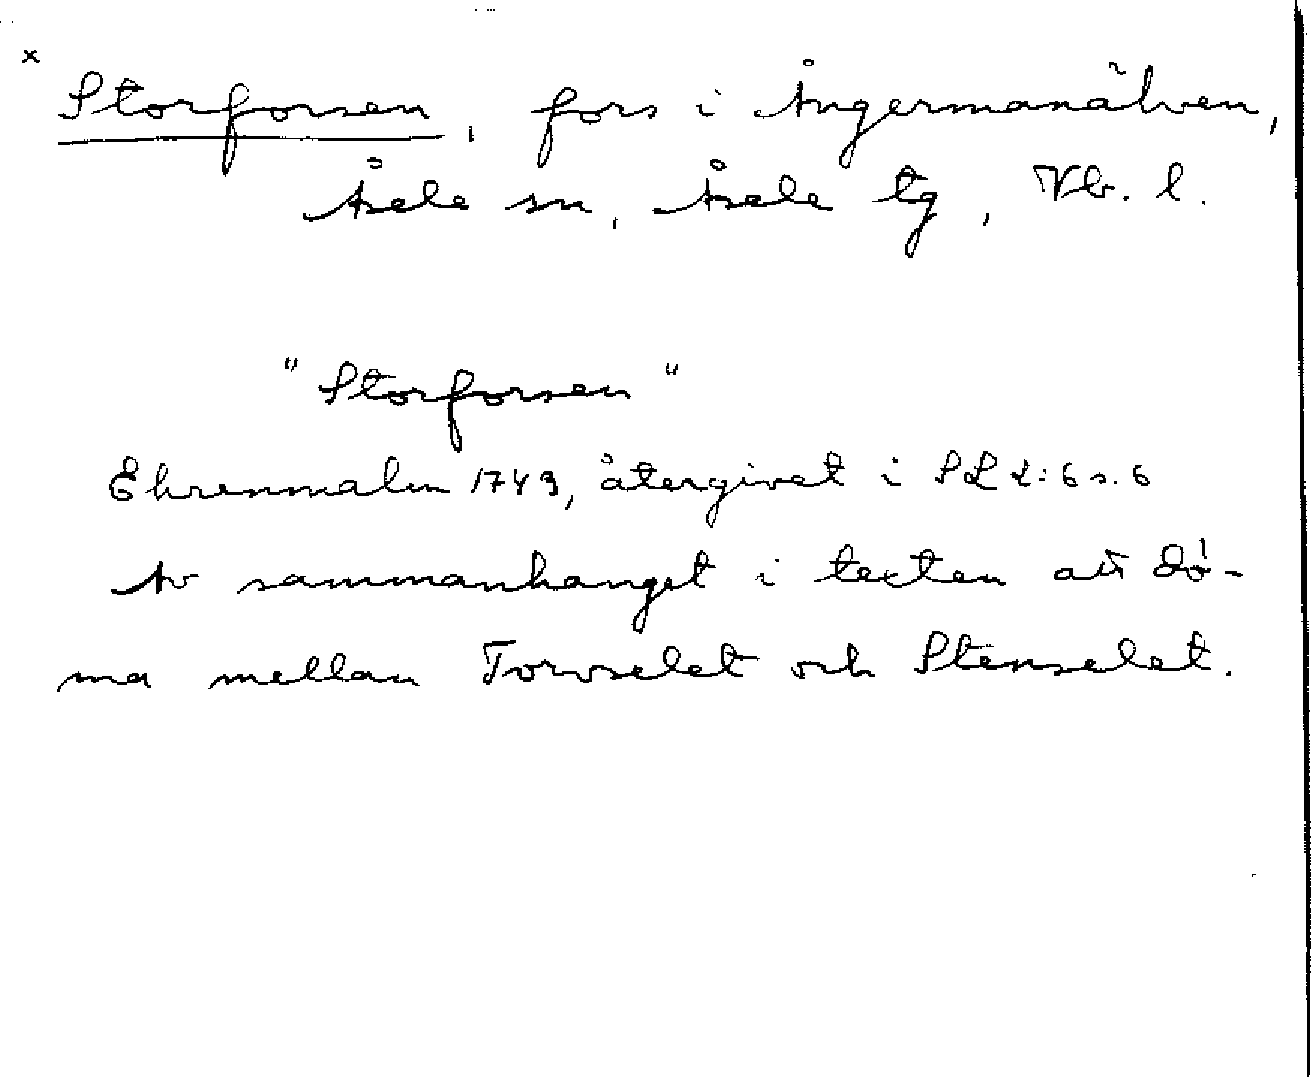 x
Storforsen, fors i Ångermanälven,
Åsele sn, Åsele tg, Vb. l.
"Storforsen"
Ehrenmalm 1743, återgivet i SL 2:6 s. 6
Av sammanhanget i texten att dö-
ma mellan Torvselet och Stenselet.